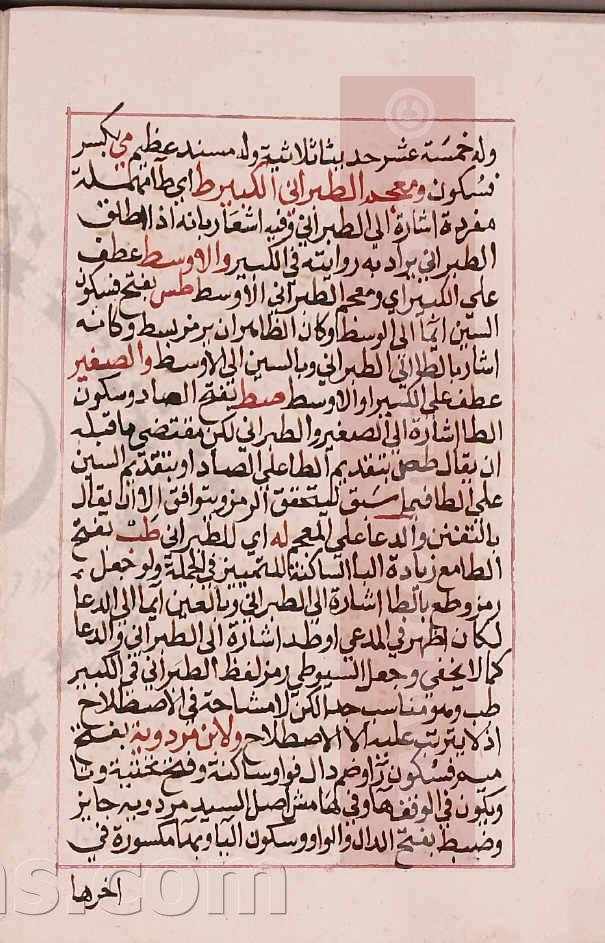 وله خمسة عشر حديثا ثلاثية وله مسند عظيم مي بكسر
فسكون ومعجم الطبراني الكبير ط اي طآ مهملة
مفردة اشارة الي الطبراني وفيه اشعار بانه اذا اطلق
الطبراني يراد به روايته في الكبير والاوسط عطف
علي الكبير اي ومعجم الطبراني الاوسط طس بفتح فسكون
السين ايما الي الوسط وكان الظاهر ان يرمز بسط وكانه
اشار بالطا الي الطبراني وبالسين الي الاوسط والصغير
عطف علي الكبير او الاوسط صط بفتح الصاد وسكون
الطا اشارة الي الصغير والطبراني لكن مقتضي ما قبله
ان يقال طص بتقديم الطا علي الصاد او بتقديم السين
علي الطا فيما سبق ليتحقق الرمز ويتوافق الا ان يقال
بالتفنن والدعا علي المعجم له اي للطبراني طب بفتح
الطا مع زيادة البا الساكنة للتمييز في الجملة ولو جعل
رمزه طع بالطا اشارة الي الطبراني وبالعين ايما الي الدعا
لكان اظهر في المدعي او طد اشارة الي الطبراني والدعا
كما لا يخفي وجعل السيوطي رمز لفظ الطبراني في الكبير
طب وهو مناسب جدا لكن لا مشاحة في الاصطلاح
اذ لا يترتب عليه الا الاصطلاح ولابن مردوية بفتح
ميم فسكون را وضم دال فواو ساكنة وفتح تحتية وتا
ويكون في الوقف هآ وفي هامش اصل السيد مردويه جايز
وضبط بفتح الدال والواو وسكون اليا وبهآ مكسورة في
اخرها
ns.com